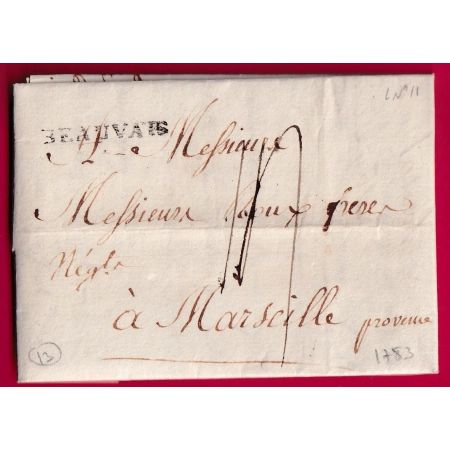 L N° 11
BEAUVAIS
A Messieurs
Messieurs Roux freres
Négts
à Marseille provence
13
1783